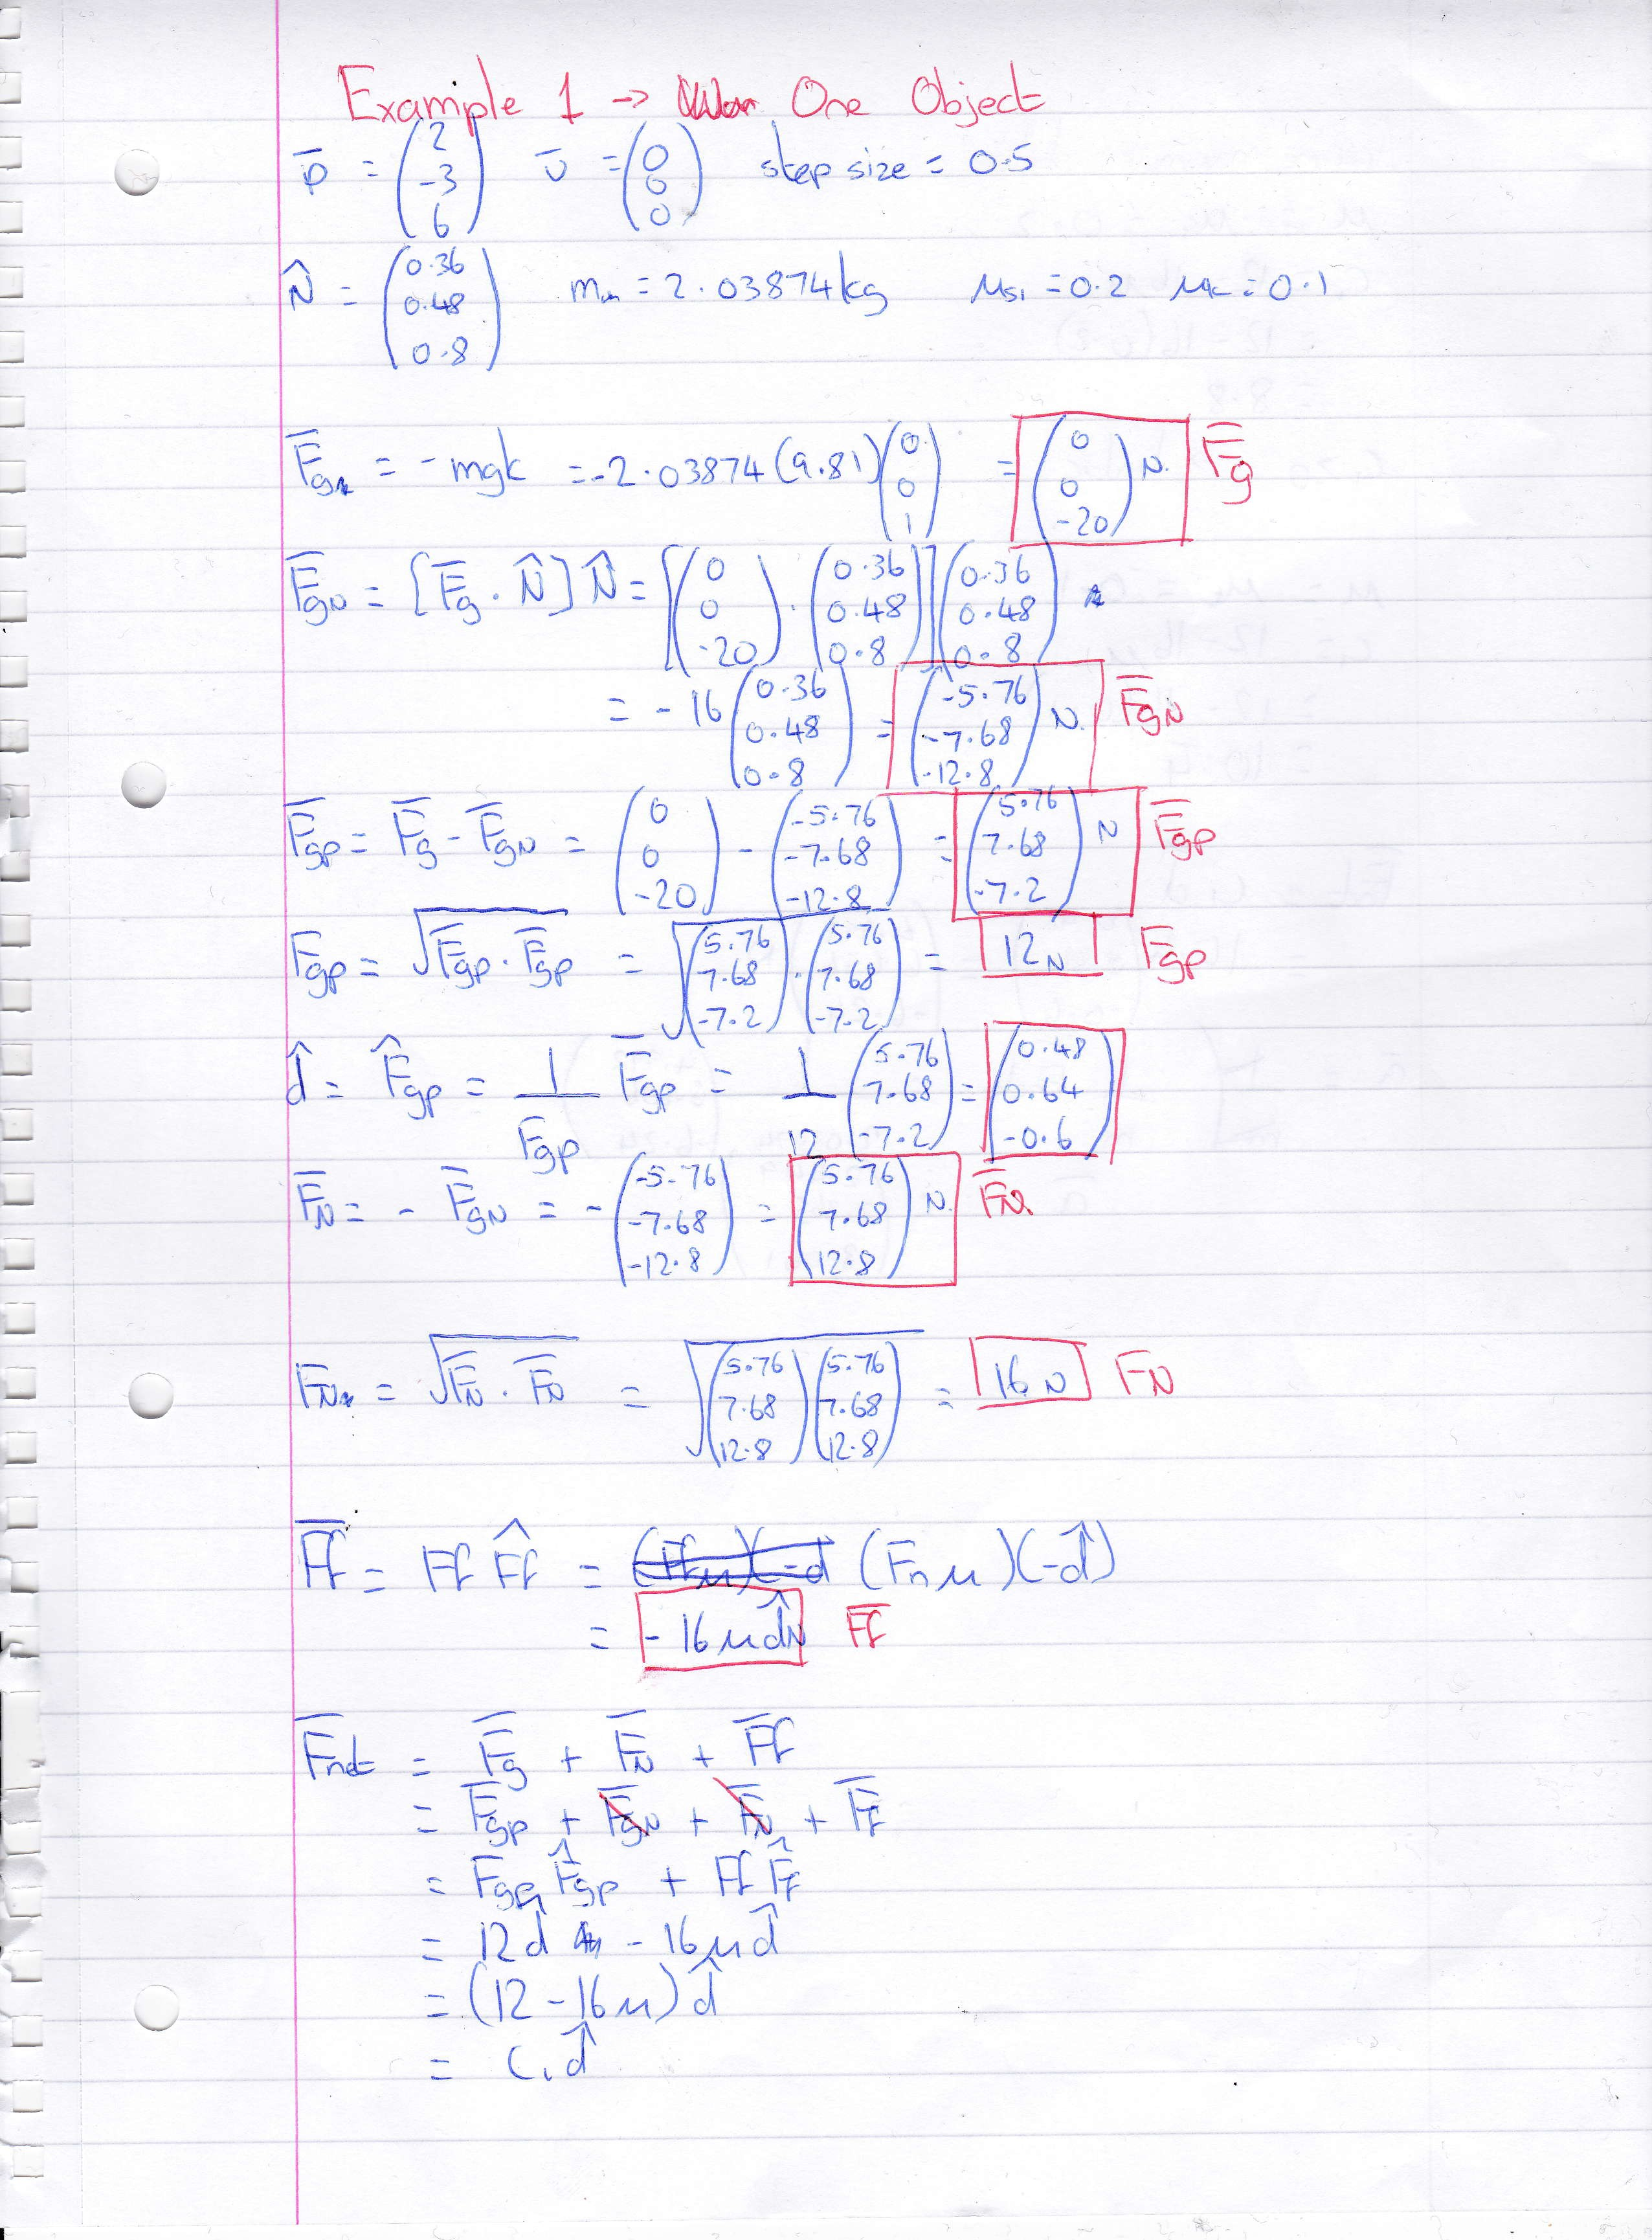 Example 1 → One Object
p̄ = (2 -3 6) ῡ = (0 0 0) step size = 0.5
N̂ = (0.36 0.48 0.8) m = 2.03874kg μs₁ = 0.2 μk = 0.1
F̄g = -mgk = -2.03874(9.81)(0 0 1) = (0 0 -20) N. F̄g
F̄gN = [F̄g . N̂] N̂ = [(0 0 -20) . (0.36 0.48 0.8)] (0.36 0.48 0.8)
= -16 (0.36 0.48 0.8) = (-5.76 -7.68 -12.8) N. F̄gN
F̄gp = F̄g - F̄gN = (0 0 -20) - (-5.76 -7.68 -12.8) = (5.76 7.68 -7.2) N F̄gp
Fgp = √(F̄gp . F̄gp) = √((5.76 7.68 -7.2) . (5.76 7.68 -7.2)) = 12N Fgp
d̂ = F̂gp = 1/Fgp F̄gp = 1/12 (5.76 7.68 -7.2) = (0.48 0.64 -0.6)
F̄N = - F̄gN = -(-5.76 -7.68 -12.8) = (5.76 7.68 12.8) N. F̄N.
F̄N = √(F̄N . F̄N) = √((5.76 7.68 12.8)(5.76 7.68 12.8)) = 16N FN
F̄f = Ff F̂f = (Fnμ)(-d̂)
= -16μd̂N F̄f
F̄net = F̄g + F̄N + F̄f
= F̄gp + F̄gN + F̄N + F̄f
= Fgp F̂gp + Ff F̂f
= 12d̂ - 16μd̂
= (12 - 16μ)d̂
= C₁d̂